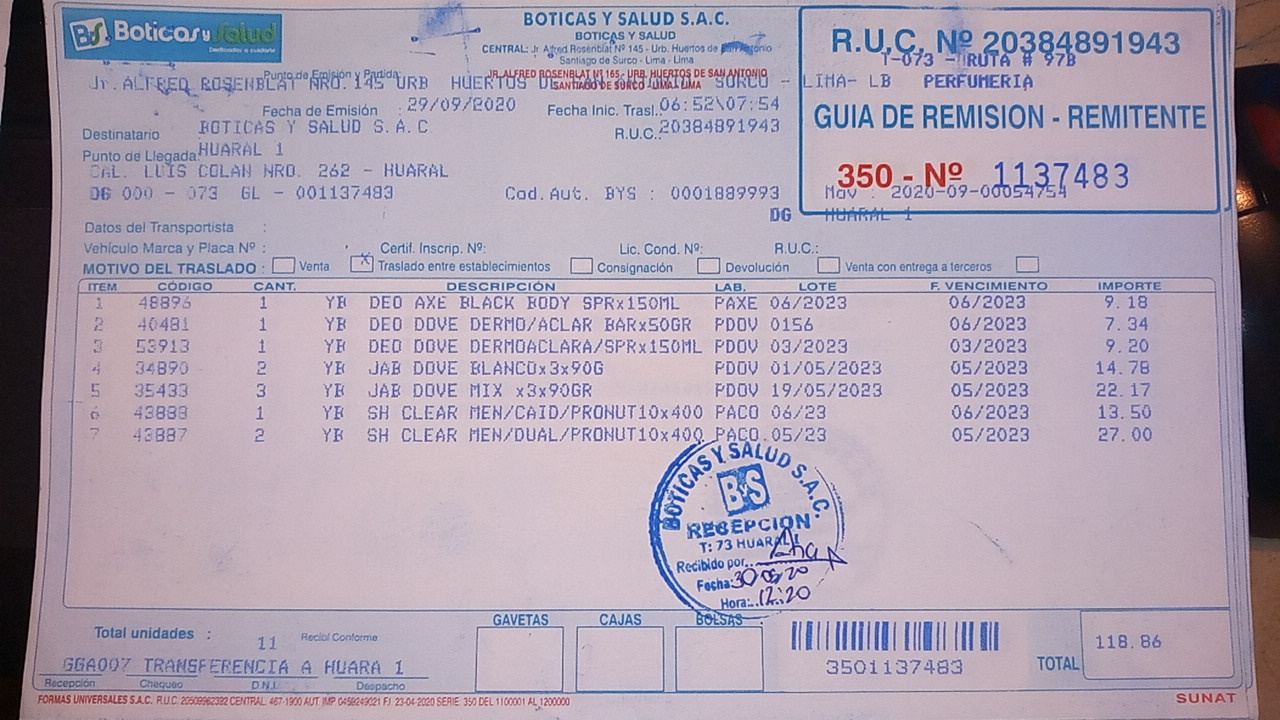 BS Boticas y Salud
Dedicados a cuidarte
BOTICAS Y SALUD S.A.C.
BOTICAS Y SALUD
CENTRAL: Jr. Alfred Rosenblat Nº 145 - Urb. Huertos de San Antonio
Santiago de Surco - Lima - Lima
JR. ALFRED ROSENBLAT Nº 165 - URB. HUERTOS DE SAN ANTONIO
SANTIAGO DE SURCO - LIMA - LIMA
R.U.C. Nº 20384891943
T-073 - RUTA # 97B
PERFUMERIA
GUIA DE REMISION - REMITENTE
350 - Nº 1137483
Mov : 2020-09-00054754
DG HUARAL 1
Punto de Emisión y Partida
Jr. ALFRED ROSENBLAT NRO. 145 URB HUERTOS DE SAN ANTONIO SURCO - LIMA- LB
Fecha de Emisión : 29/09/2020 Fecha Inic. Trasl.: 06:52\07:54
Destinatario BOTICAS Y SALUD S.A.C R.U.C.: 20384891943
Punto de Llegada: HUARAL 1
CAL. LUIS COLAN NRO. 262 - HUARAL
DG 000 - 073 GL - 001137483 Cod.Aut. BYS : 0001889993
Datos del Transportista :
Vehículo Marca y Placa Nº : Certif. Inscrip. Nº: Lic. Cond. Nº: R.U.C.:
MOTIVO DEL TRASLADO : Venta X Traslado entre establecimientos Consignación Devolución Venta con entrega a terceros
ITEM CÓDIGO CANT. DESCRIPCIÓN LAB. LOTE F. VENCIMIENTO IMPORTE
1 48896 1 YB DEO AXE BLACK BODY SPRx150ML PAXE 06/2023 06/2023 9.18
2 40481 1 YB DEO DOVE DERMO/ACLAR BARx50GR PDOV 0156 06/2023 7.34
3 53913 1 YB DEO DOVE DERMOACLARA/SPRx150ML PDOV 03/2023 03/2023 9.20
4 34890 2 YB JAB DOVE BLANCOx3x90G PDOV 01/05/2023 05/2023 14.78
5 35433 3 YB JAB DOVE MIX x3x90GR PDOV 19/05/2023 05/2023 22.17
6 43888 1 YB SH CLEAR MEN/CAID/PRONUT10x400 PACO 06/23 06/2023 13.50
7 43887 2 YB SH CLEAR MEN/DUAL/PRONUT10x400 PACO 05/23 05/2023 27.00
BOTICAS Y SALUD S.A.C.
BS
RECEPCION
T: 73 HUARAL 1
Recibido por
Fecha: 30 09 20
Hora: 12:20
Total unidades : 11 Recibí Conforme
GAVETAS CAJAS BOLSAS
3501137483
TOTAL 118.86
GGA007 TRANSFERENCIA A HUARA 1
Recepción Chequeo D.N.I. Despacho
FORMAS UNIVERSALES S.A.C. R.U.C. 20509962392 CENTRAL: 467-1900 AUT. IMP. 0459249021 F.I. 23-04-2020 SERIE: 350 DEL 1100001 AL 1200000
SUNAT